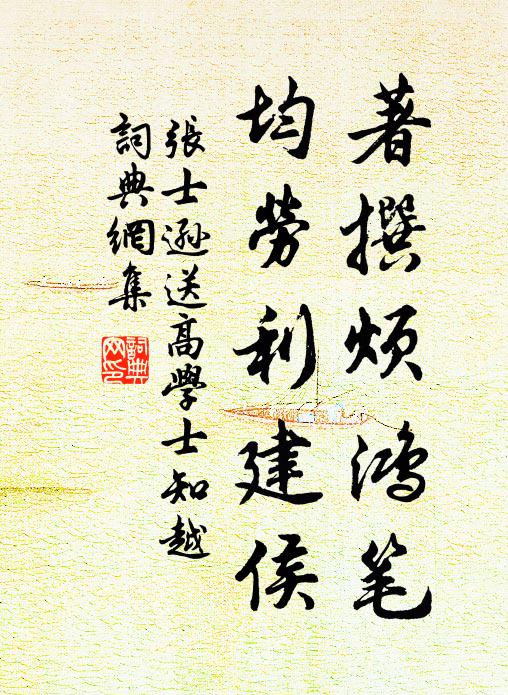 著撰烦鸿笔
均勞利建侯
張士遜送高學士知越
詞典網集
詞典網印